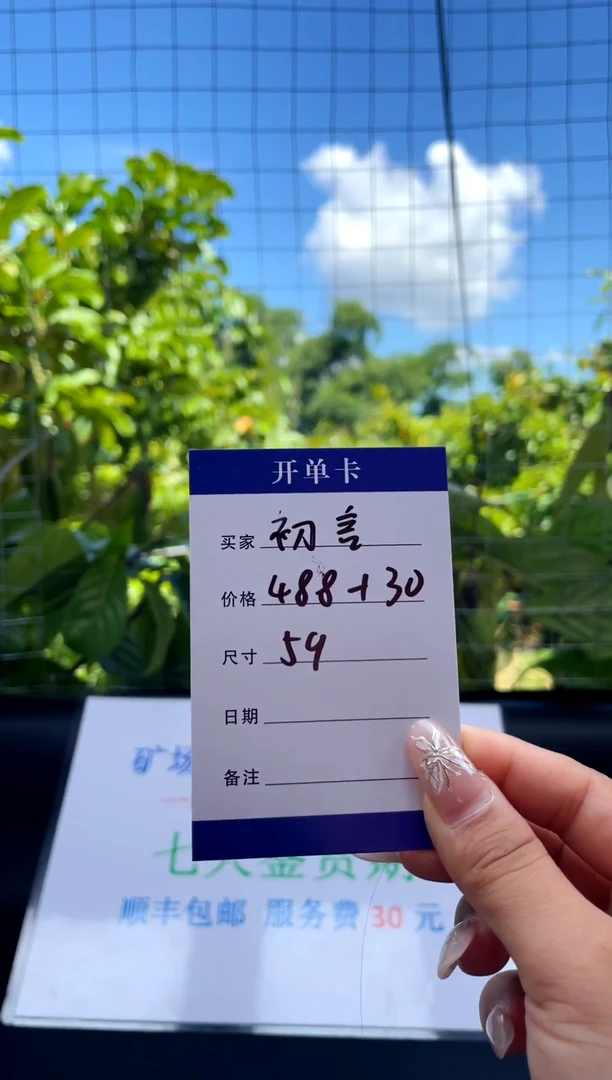 开单卡
买家 初言
价格 488+30
尺寸 59
日期
备注
矿场
顺丰包邮 服务费30元